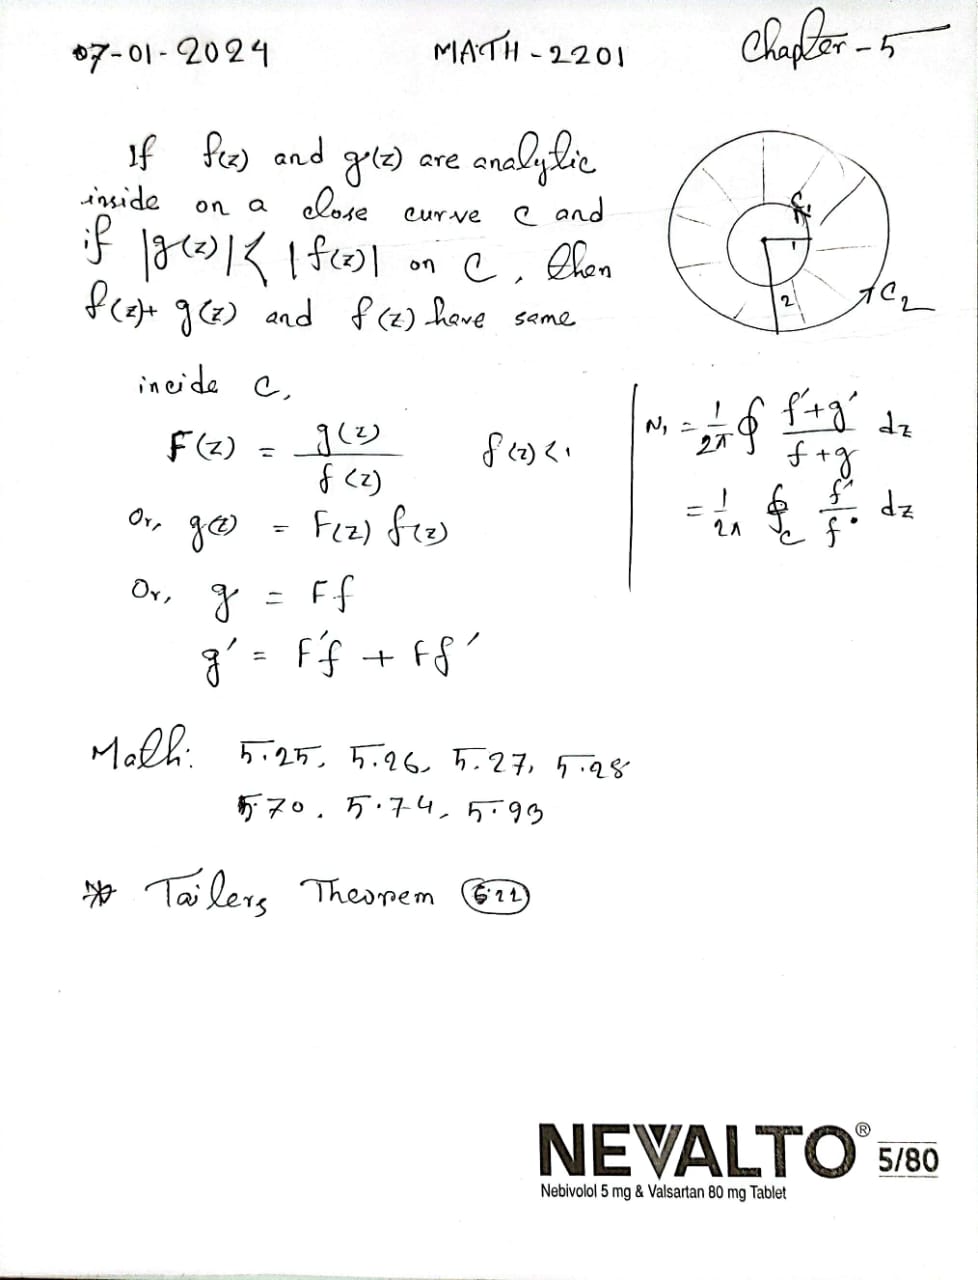 07-01-2024 MATH-2201 Chapter-5
If f(z) and g(z) are analytic
inside on a close curve C and
if |g(z)| < |f(z)| on C, then
f(z)+ g(z) and f(z) have same
incide C,
F(z) = g(z)/f(z) f(z) < 1
Or, g(z) = F(z) f(z)
Or, g = Ff
g' = F'f + Ff'
C1
1
2
C2
N1 = 1/2π ∮ f'+g'/f+g dz
= 1/2π ∮C f'/f dz
Math: 5.25, 5.26, 5.27, 5.28
5.70, 5.74, 5.93
* Tailers Theorem
NEVALTO® 5/80
Nebivolol 5 mg & Valsartan 80 mg Tablet